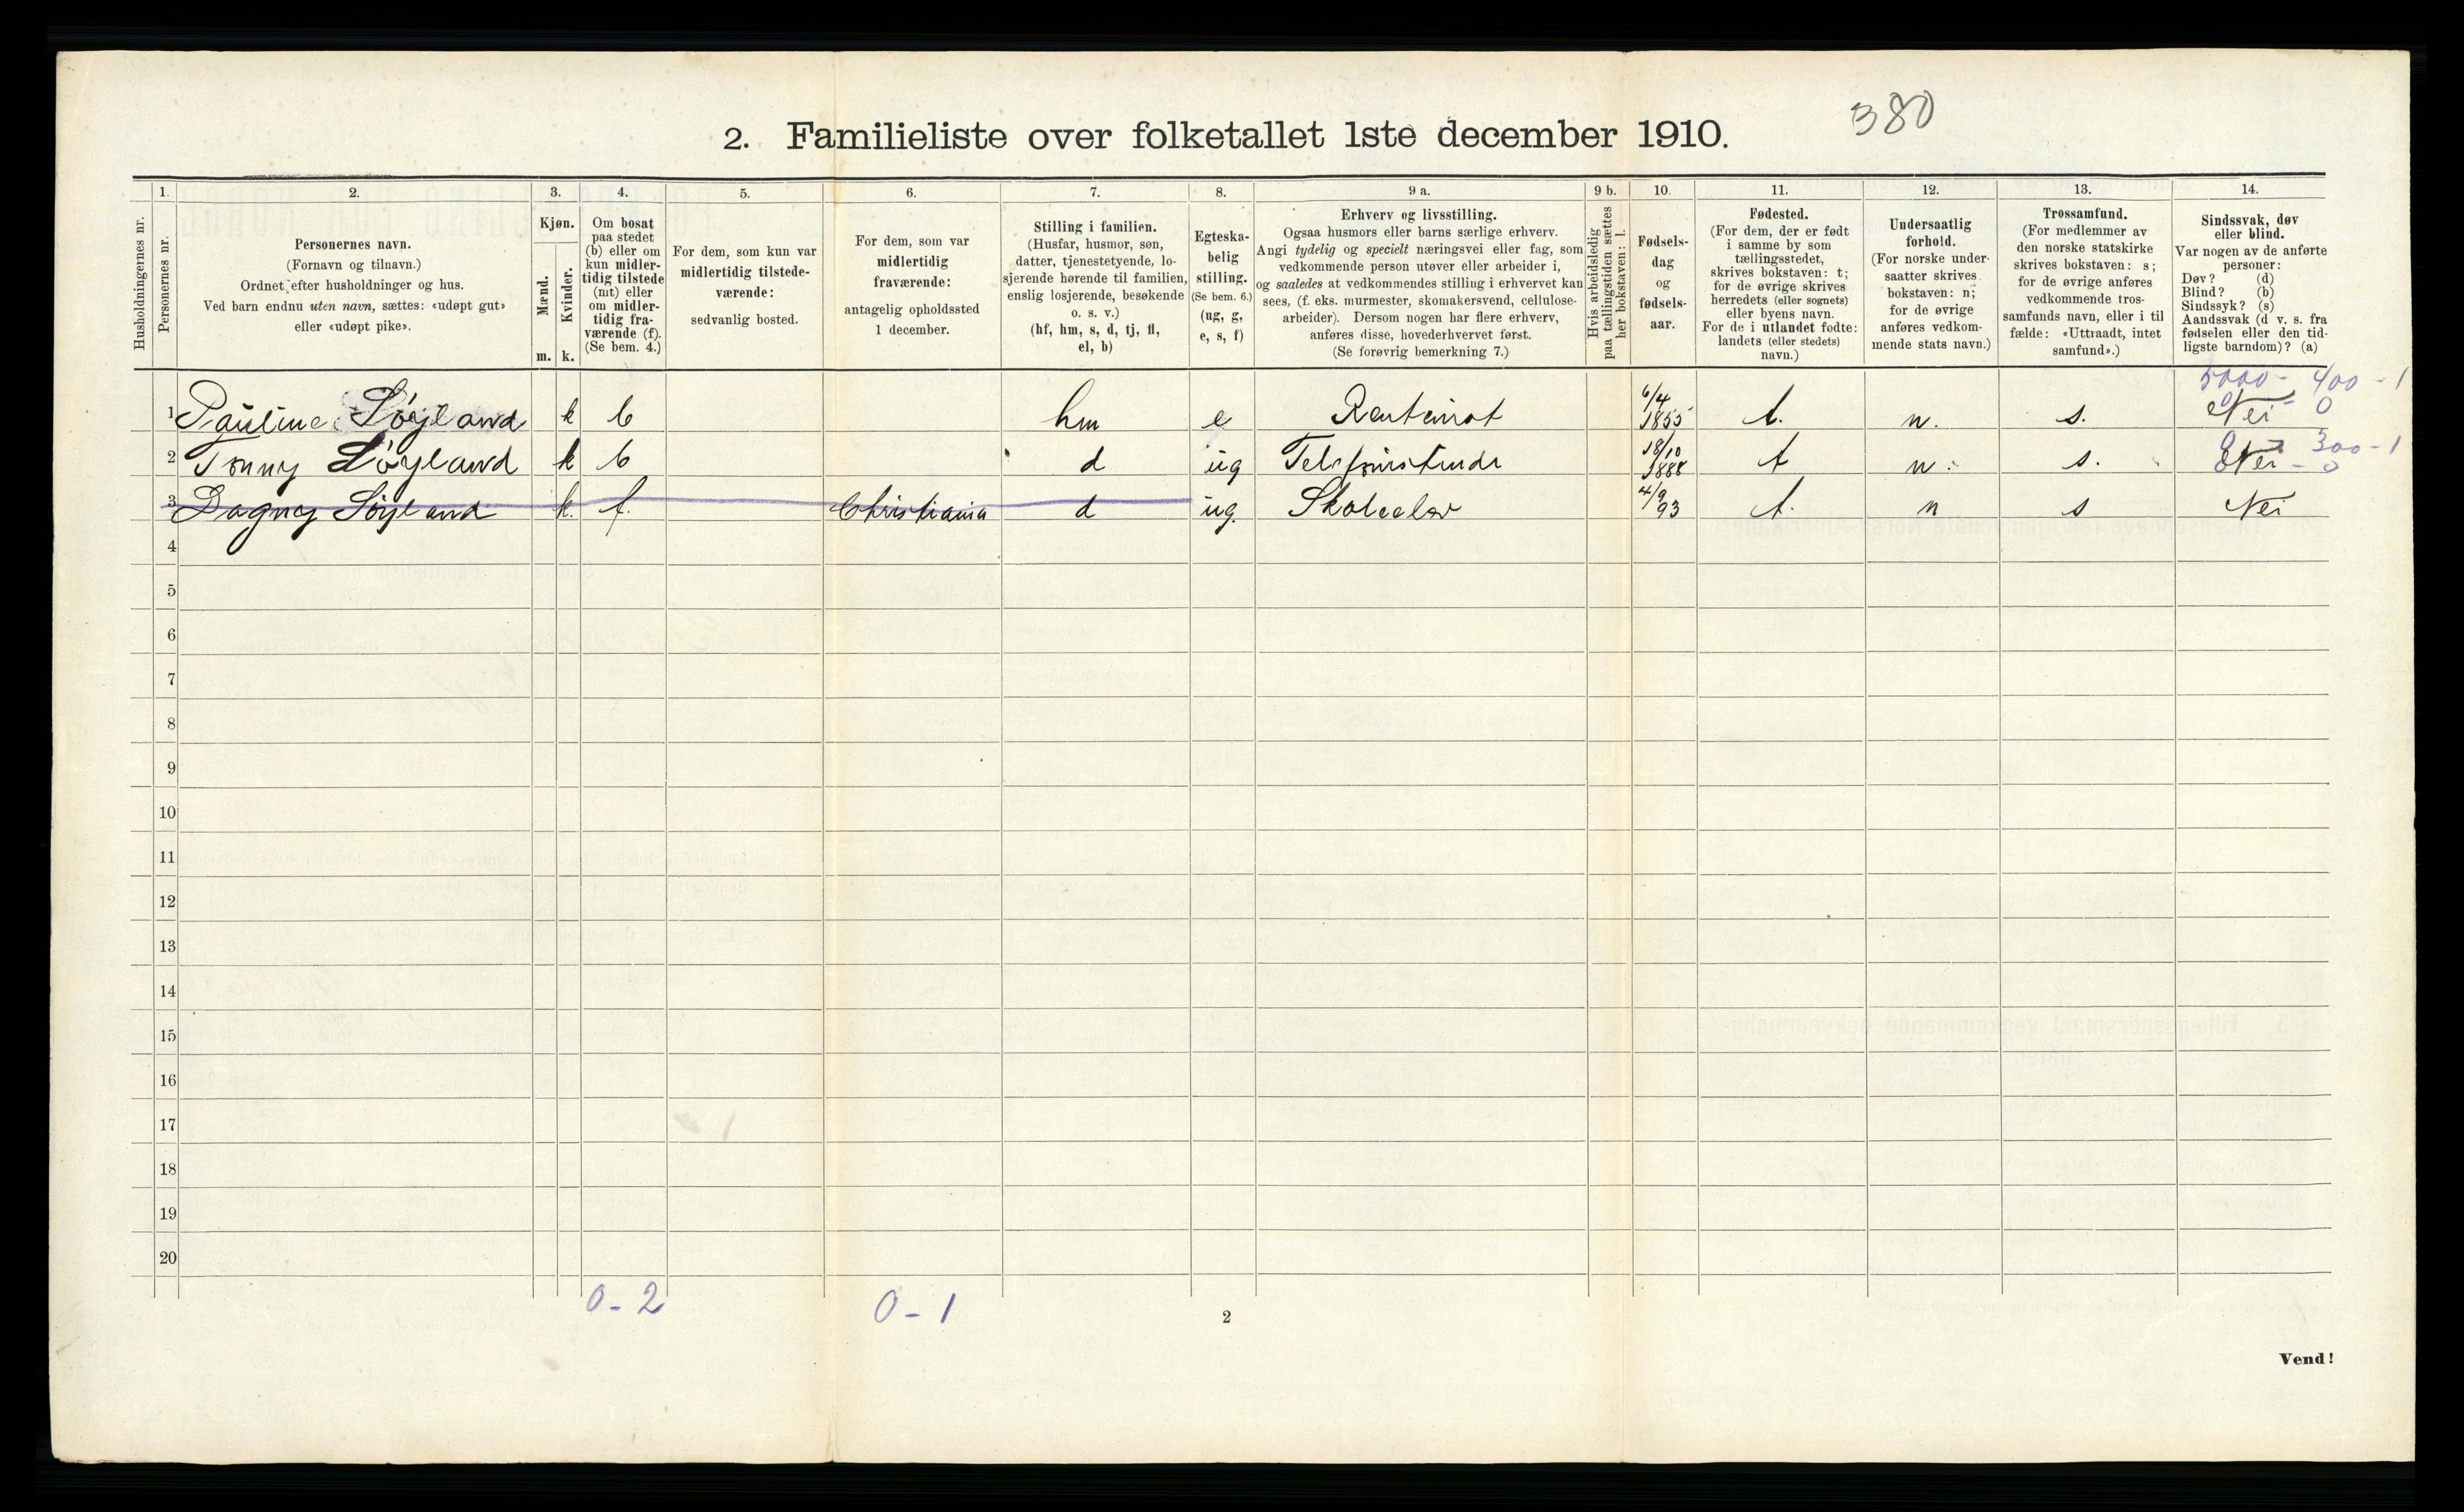 380
2. Familieliste over folketallet 1ste december 1910.
1. 2. 3. 4. 5. 6. 7. 8. 9 a. 9 b. 10. 11. 12. 13. 14.
Husholdningernes nr.
Personernes nr.
Personernes navn.
(Fornavn og tilnavn.)
Ordnet efter husholdninger og hus.
Ved barn endnu uten navn, sættes: «udøpt gut»
eller «udøpt pike».
Kjøn.
Mænd.
Kvinder.
m. k.
Om bosat
paa stedet
(b) eller om
kun midler-
tidig tilstede
(mt) eller
om midler-
tidig fra-
værende (f).
(Se bem. 4.)
For dem, som kun var
midlertidig tilstede-
værende:
sedvanlig bosted.
For dem, som var
midlertidig
fraværende:
antagelig opholdssted
1 december.
Stilling i familien.
(Husfar, husmor, søn,
datter, tjenestetyende, lo-
sjerende hørende til familien,
enslig losjerende, besøkende
o. s. v.)
(hf, hm, s, d, tj, fl,
el, b)
Egteska-
belig
stilling.
(Se bem. 6.)
(ug, g,
e, s, f)
Erhverv og livsstilling.
Ogsaa husmors eller barns særlige erhverv.
Angi tydelig og specielt næringsvei eller fag, som
vedkommende person utøver eller arbeider i,
og saaledes at vedkommendes stilling i erhvervet kan
sees, (f. eks. murmester, skomakersvend, cellulose-
arbeider). Dersom nogen har flere erhverv,
anføres disse, hovederhvervet først.
(Se forøvrig bemerkning 7.)
Hvis arbeidsledig
paa tællingstiden sættes
her bokstaven: l.
Fødsels-
dag
og
fødsels-
aar.
Fødested.
(For dem, der er født
i samme by som
tællingsstedet,
skrives bokstaven: t;
for de øvrige skrives
herredets (eller sognets)
eller byens navn.
For de i utlandet fødte:
landets (eller stedets)
navn.)
Undersaatlig
forhold.
(For norske under-
saatter skrives
bokstaven: n;
for de øvrige
anføres vedkom-
mende stats navn.)
Trossamfund.
(For medlemmer av
den norske statskirke
skrives bokstaven: s;
for de øvrige anføres
vedkommende tros-
samfunds navn, eller i til
fælde: «Uttraadt, intet
samfund».)
Sindssvak, døv
eller blind.
Var nogen av de anførte
personer:
Døv? (d)
Blind? (b)
Sindssyk? (s)
Aandssvak (d v. s. fra
fødselen eller den tid-
ligste barndom)? (a)
5000 - 400 - 1
1 Pauline Søyland k b hm e Rentenist 6/4 1855 t. n. s. Nei 0
300 - 1
2 Tonny Søyland k b d ug 18/10 1888 t n. s. Nei - 0
3 Dagny Søyland k. f. Christiania d ug. Skoleelev 4/9 93 t. n s Nei
4
5
6
7
8
9
10
11
12
13
14
15
16
17
18
19
20
0 - 2 0 - 1
2
Vend!